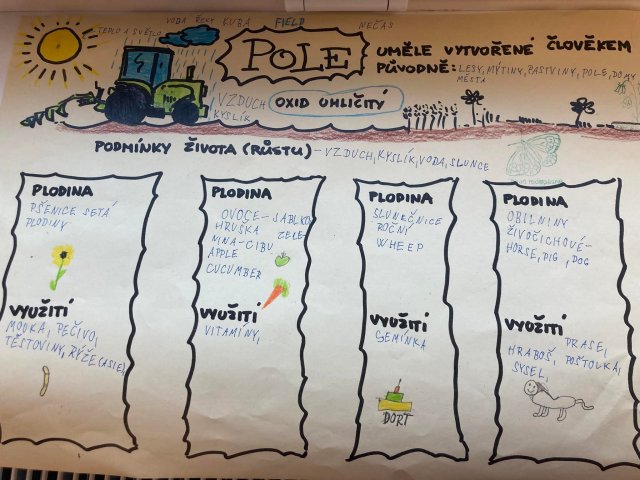 VODA ŘEKY KUBA FIELD NEČAS
TEPLO A SVĚTLO
POLE
UMĚLE VYTVOŘENÉ ČLOVĚKEM
PŮVODNĚ: LESY, MÝTINY, PASTVINY, POLE, DOMY
MĚSTA
VZDUCH
KYSLÍK
OXID UHLIČITÝ
PODMÍNKY ŽIVOTA (RŮSTU) - VZDUCH, KYSLÍK, VODA, SLUNCE
PLODINA
PŠENICE SETÁ
PLODINY
VYUŽITÍ
MOUKA, PEČIVO,
TĚSTOVINY, RÝŽE (ASIE)
PLODINA
OVOCE - JABLKO
HRUŠKA ZELE-
NINA-CIBU
APPLE
CUCUMBER
VYUŽITÍ
VITAMÍNY,
PLODINA
SLUNEČNICE
ROČNÍ
WHEEP
VYUŽITÍ
SEMÍNKA
DORT
PLODINA
OBILNINY
ŽIVOČICHOVÉ-
HORSE, PIG, DOG
VYUŽITÍ
PRASE,
HRABOŠ, POŠTOLKA,
SYSEL,